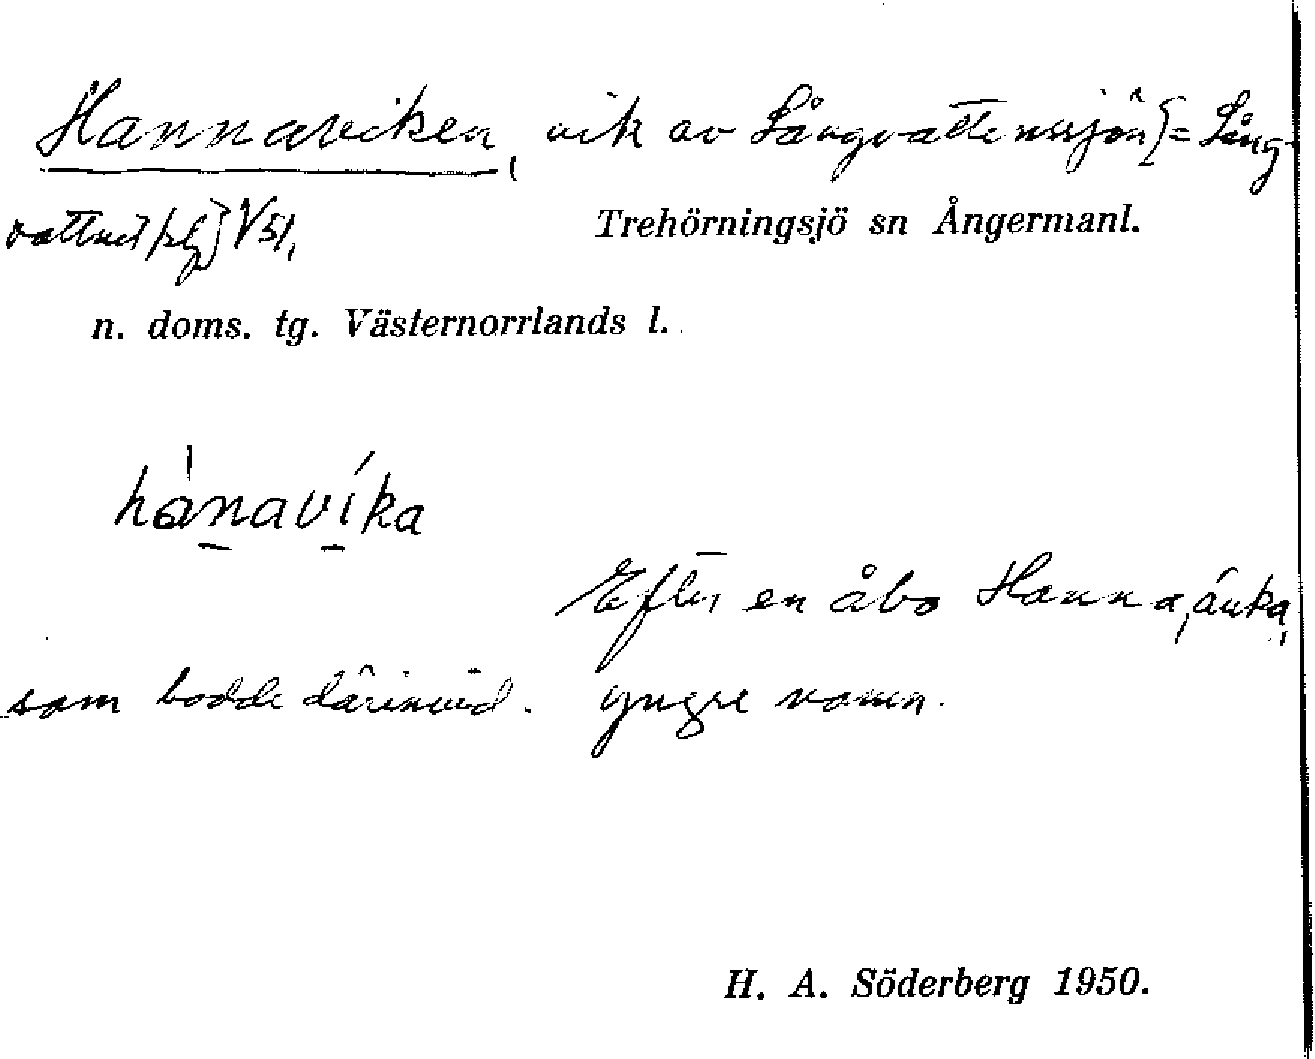 Hannaviken, vik av Långvattensjön [= Lång-
vattnet
Trehörningsjö sn Ångermanl.
n. doms. tg. Västernorrlands l.
hànavíka
Efter en åbo Hanna, änka,
som bodde därinvid. Yngre namn.
H. A. Söderberg 1950.